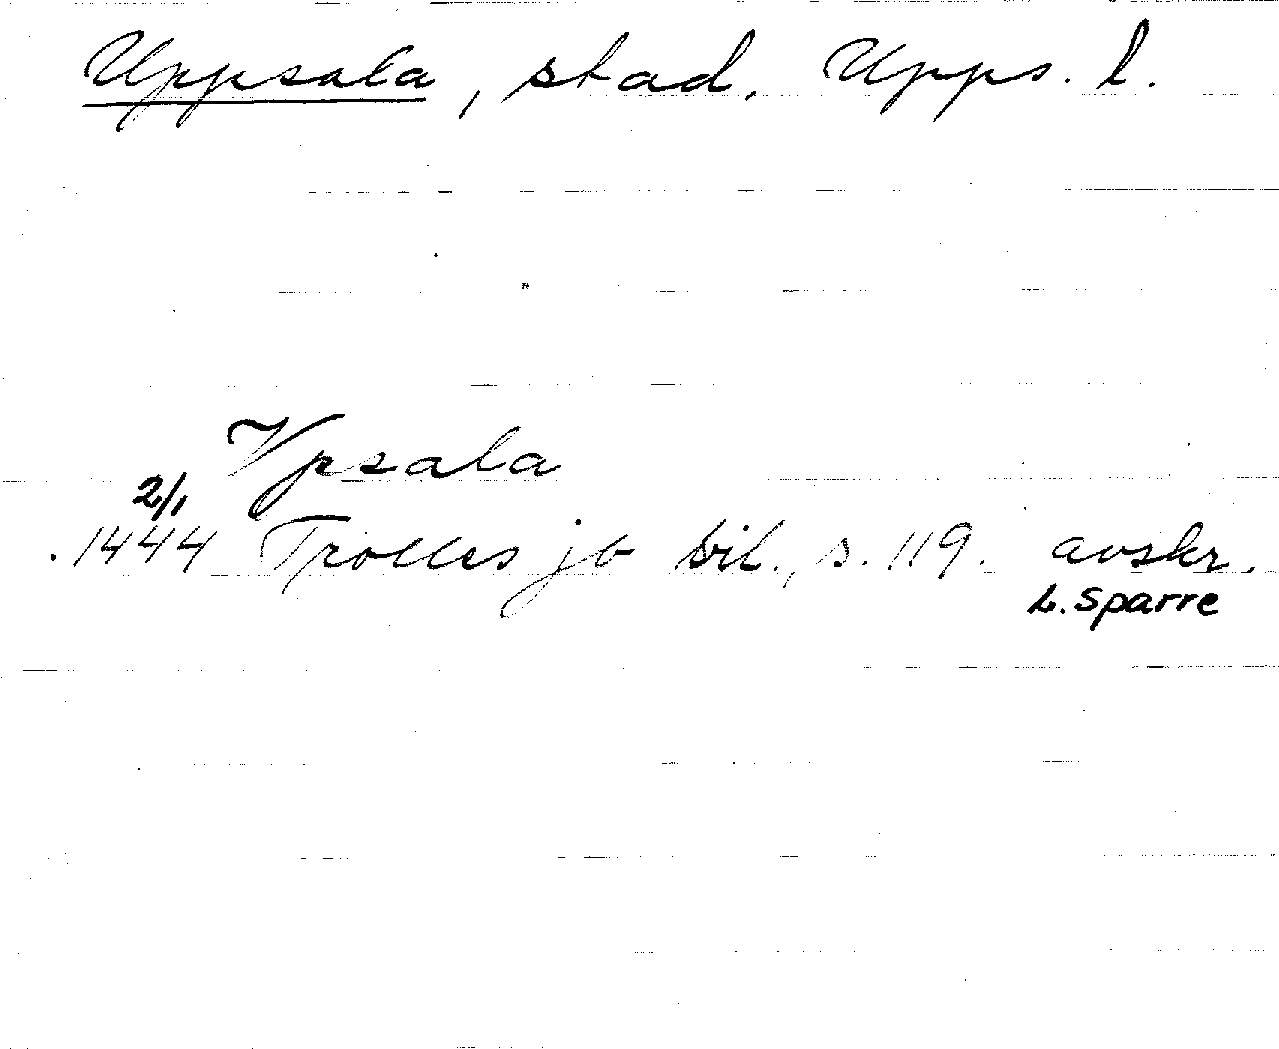 Uppsala, stad, Upps. l.
Vpsala
2/1
1444 Trolles jb bil., s. 119. avskr.
L. Sparre